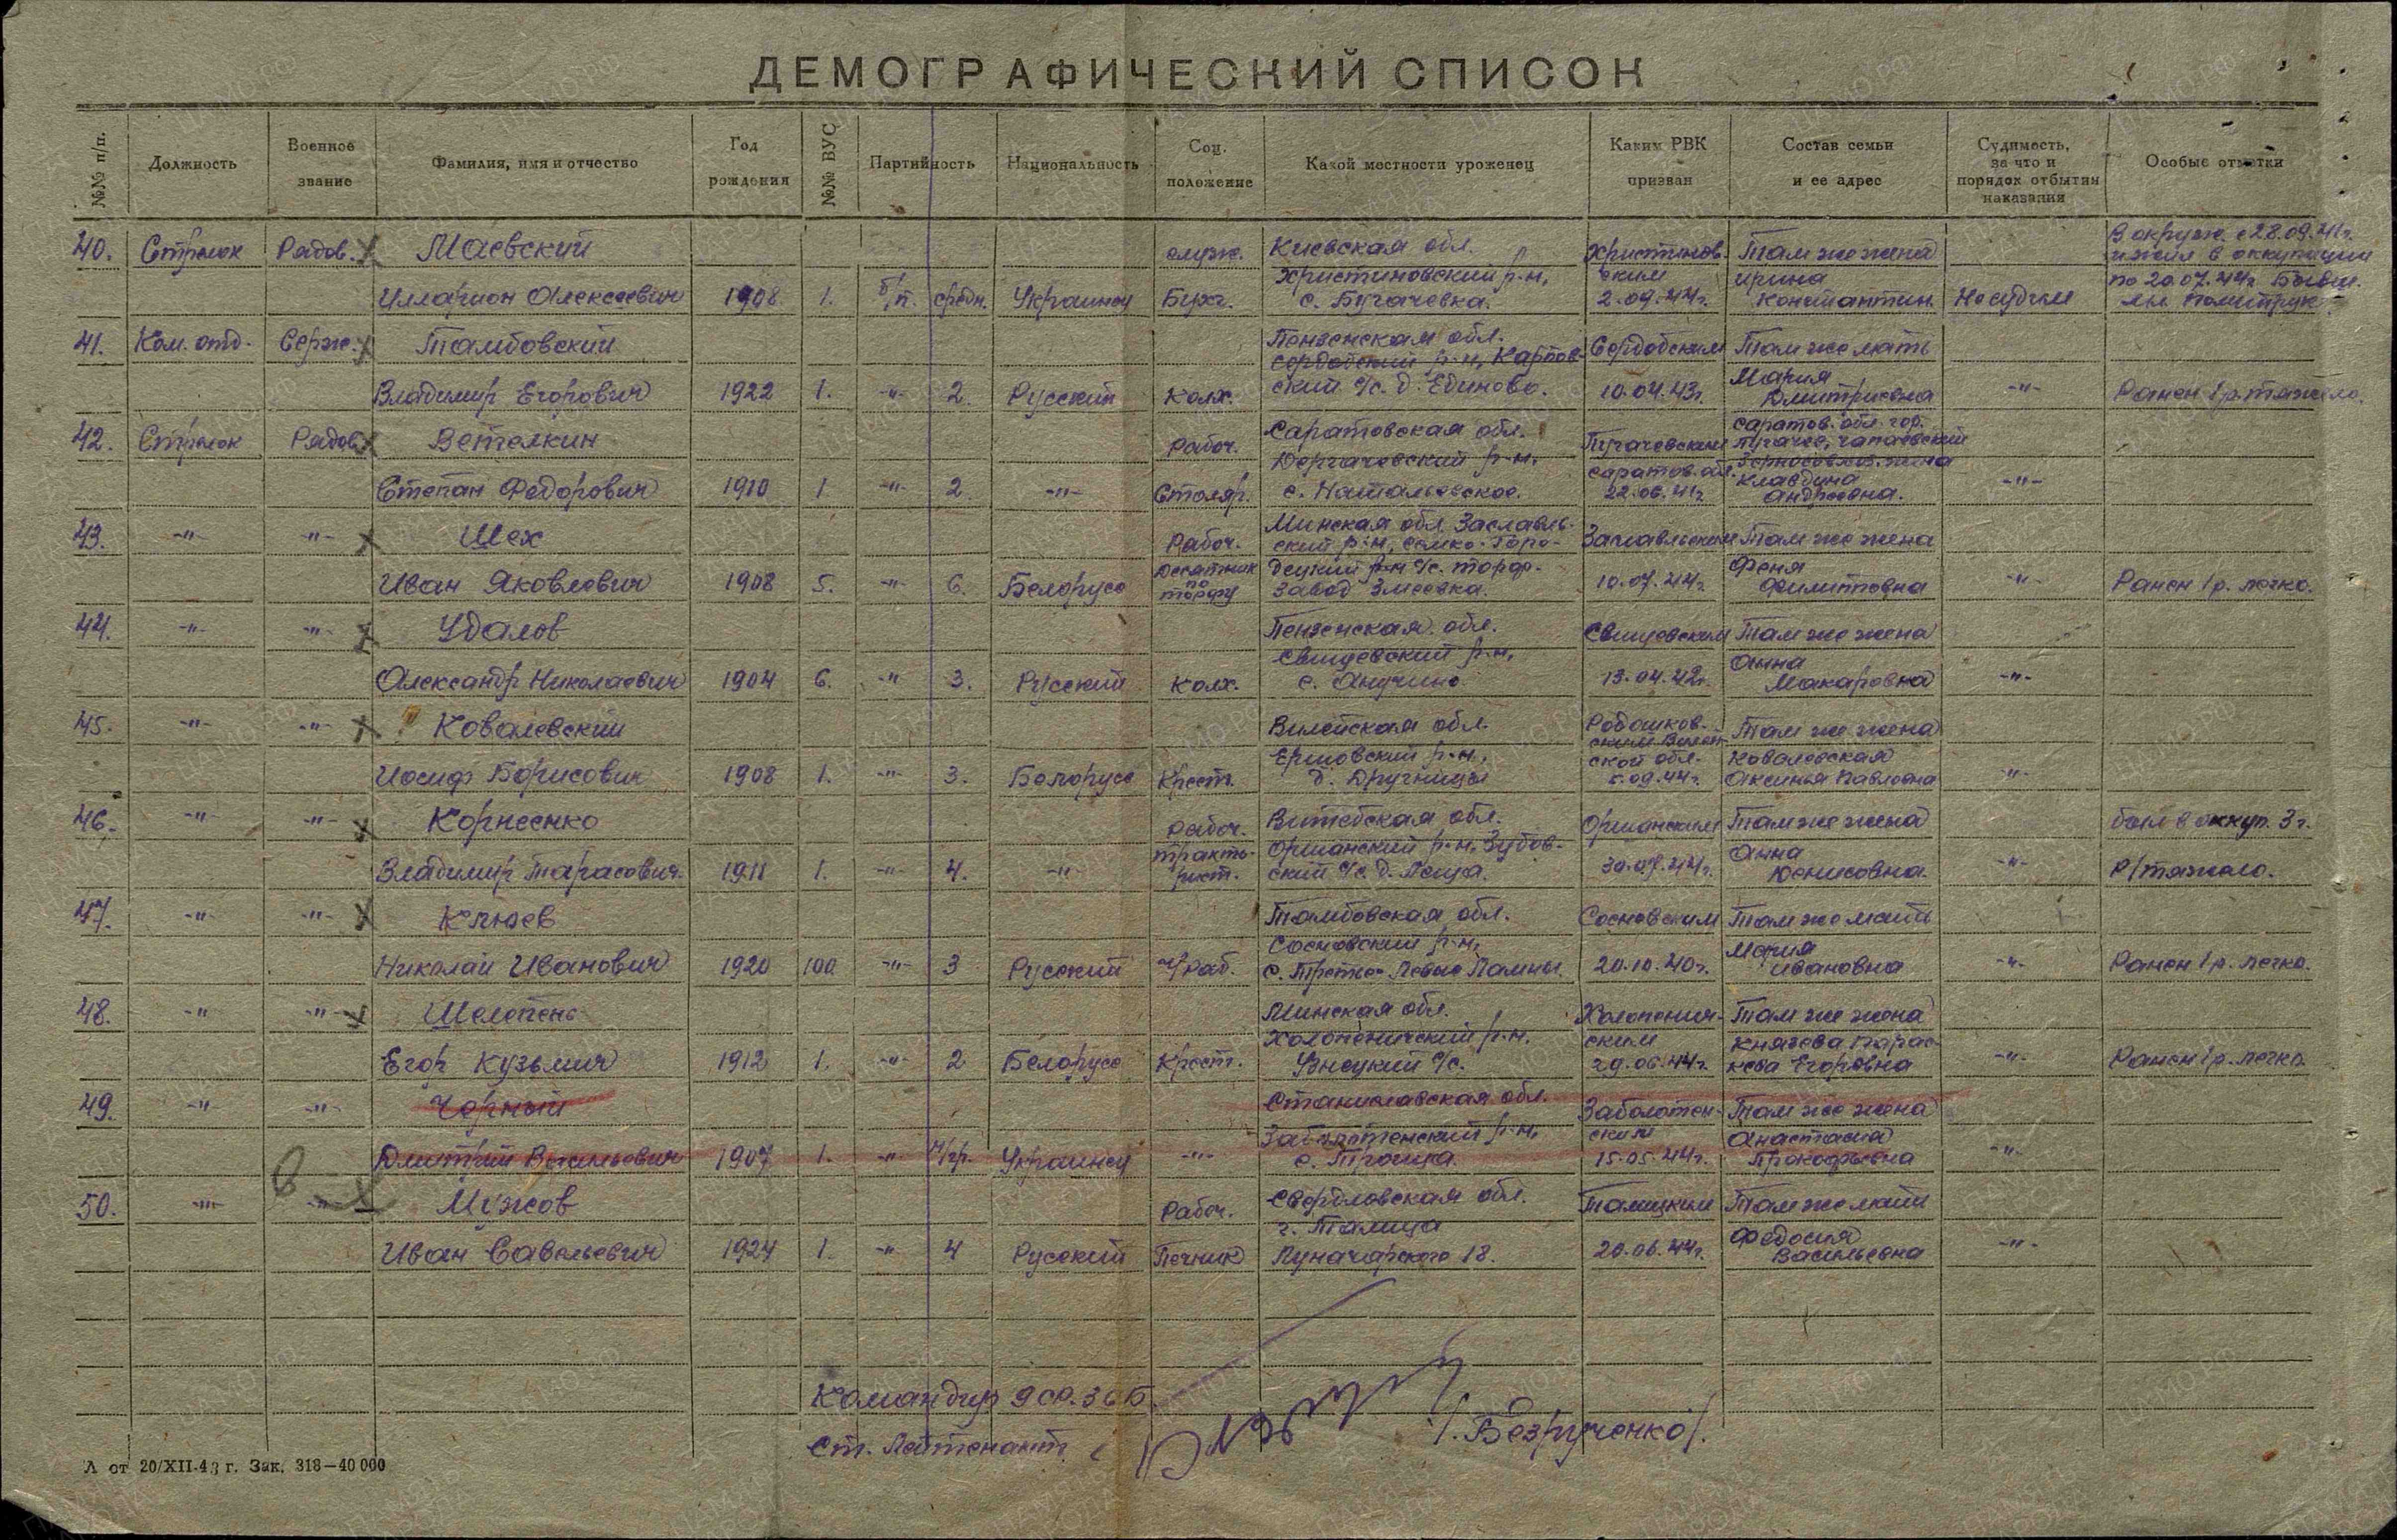 ДЕМОГРАФИЧЕСКИЙ СПИСОК
№№ п/п. Должность Военное звание Фамилия, имя и отчество Год рождения №№ ВУС Партийность Национальность Соц. положение Какой местности уроженец Каким РВК призван Состав семьи и ее адрес Судимость, за что и порядок отбытия наказания Особые отметки
40. Стрелок Рядов. Маевский служ. Киевская обл. Христинов- Там же жена В окруж. с 28.09.41г.
Христиновский р-н, ским Ирина и жил в оккупации
Илларион Алексеевич 1908 1. б/п. средн. Украинец Бухг. с. Бугачевка. 2.09.44г. Константин. Не судим по 20.07.44г. политрук
41. Ком. отд. Серж. Тамбовский Пензенская обл. Сердобским Там же мать
Сердобский р-н, Карпов- Мария
Владимир Егорович 1922 1. -"- 2. Русский Колх. ский с/с. д. Единово. 10.04.43г. Дмитриевна -"- Ранен 1 р. тяжело.
42. Стрелок Рядов. Ветелкин Рабоч. Саратовская обл. Пугачевским Саратов. обл. гор.
Дергачевский р-н, Саратов. обл. Пугачев, Чапаевский жена
Степан Федорович 1910 1 -"- 2. -"- Столяр. с. Натальевское. 22.06.41г. Клавдина Андреевна. -"-
43. -"- -"- Шех Рабоч. Минская обл. Заславль- Заславльским Там же жена
ский р-н, Семко-Горо-
Иван Яковлевич 1908 5. -"- 6. Белорусс Десятник по торфу децкий с/с. торф- 10.07.44г. Феня Филипповна -"- Ранен 1 р. легко.
завод Змеевка.
44. -"- -"- Удалов Пензенская обл. Свищевским Там же жена
Свищевский р-н,
Александр Николаевич 1904 6 -"- 3. Русский Колх. с. Анучино 13.04.42г. Анна Макаровна -"-
45. -"- -"- Ковалевский Вилейская обл. Радошков- Там же жена
ским Вилей-
Иосиф Борисович 1908 1. -"- 3. Белорусс Крест. р-н, д. Дручницы ской обл. 5.09.44г. Ковалевская Аксинья Павловна -"-
46. -"- -"- Корнеенко Рабоч. Витебская обл. Оршанским Там же жена был в оккуп. 3 г.
Оршанский р-н, Зубов-
Владимир Тарасович. 1911 1. -"- 4. -"- тракто- рист. ский с/с. д. 30.07.44г. Анна Денисовна. -"- Р/тяжело.
47. -"- -"- Клюев Тамбовская обл. Сосновским Там же мать
Сосновский р-н,
Николай Иванович 1920 100 -"- 3 Русский ч/раб. с. Третье-Левые Ламки. 20.10.40г. Мария Ивановна -"- Ранен 1 р. легко.
48. -"- -"- Шелепень Минская обл. Холопенич- Там же жена
Холопеничский р-н. ским Князева Парас-
Егор Кузьмич 1912 1. -"- 2 Белорусс Крест. с/с. 29.06.44г. кева Егоровна -"- Ранен 1 р. легко
49. -"- -"- Чорный Станиславская обл. Заболотен- Там же жена
Заболотенский р-н, ским
Дмитрий Васильевич 1907 1. -"- н/гр. Украинец -"- с. Троица. 15.05.44г. Анастасия Прокофьевна -"-
50. -"- -"- Мужов Рабоч. Свердловская обл. Талицким Там же мать
г. Талица
Иван Савельевич 1924 1. -"- 4 Русский Печник Луначарского 18. 20.06.44г. Федосия Васильевна -"-
Командир 9 ср. 3 сб.
Ст. Лейтенант /Безрученко/.
Л от 20/XII-43 г. Зак. 318—40 000